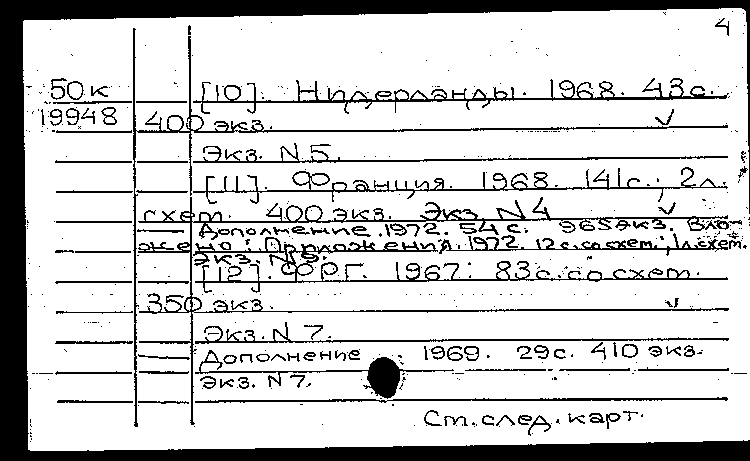 4
50к [10]. Нидерланды. 1968. 43с.
19948 400 экз. √
Экз. N 5.
[11]. Франция. 1968. 141с.; 2л.
схем. 400 экз. Экз. N 4 √
— Дополнение. 1972. 54 с. 965 экз. Вло-
жено: Приложения. 1972. 12 с. со схем.; 1 л. схем.
Экз. N 5.
[12]. ФРГ. 1967. 83с. со схем.
350 экз. √
Экз. N 7.
— Дополнение. 1969. 29с. 410 экз.
Экз. N 7.
Ст. след. карт.